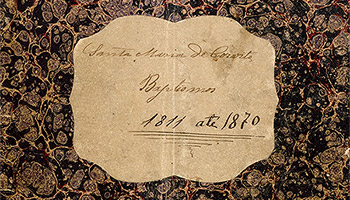 Santa Maria de Coverto
Baptismos
1811 até 1870